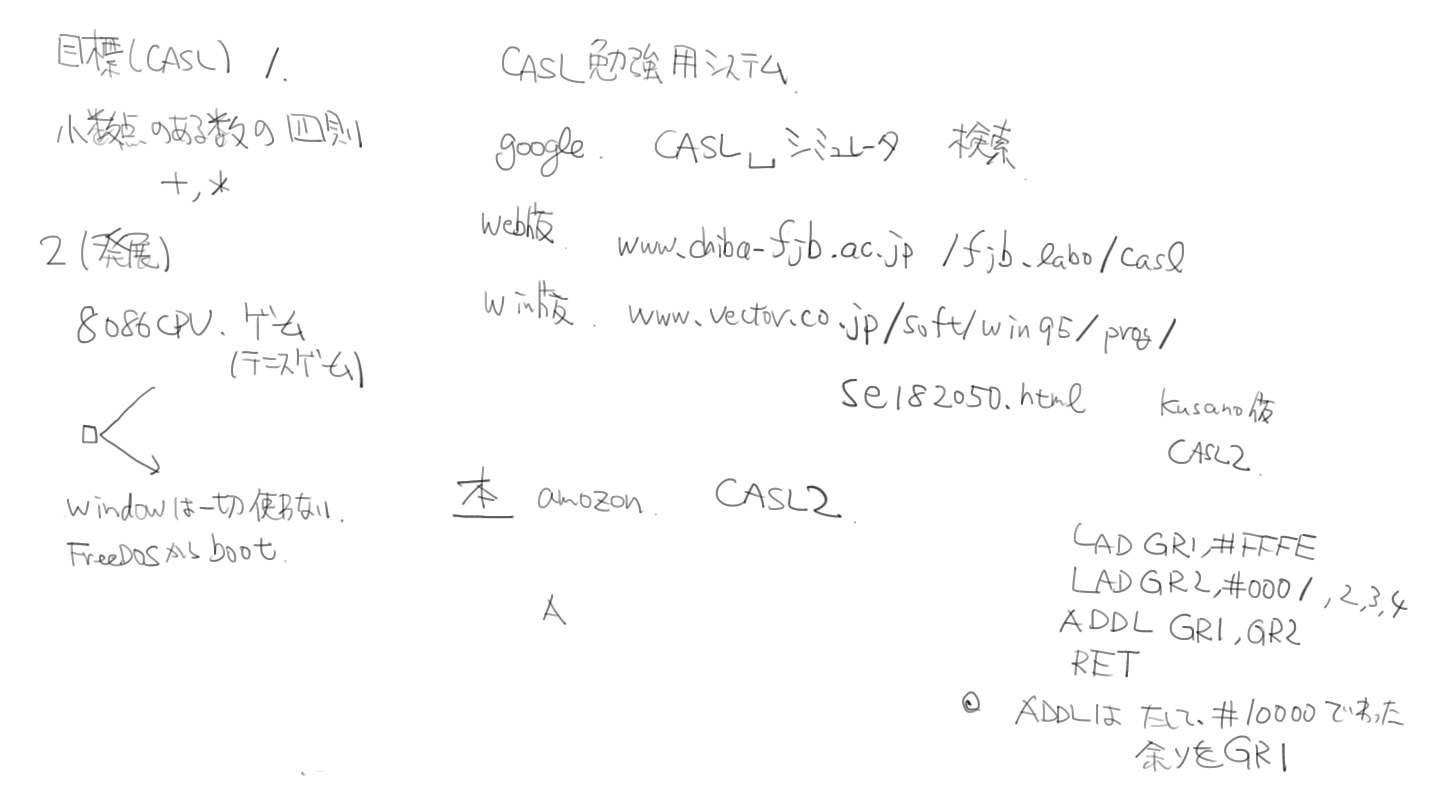 目標(CASL) 1.
小数点のある数の四則
+,*
2(発展)
8086CPU. ゲーム
(テニスゲーム)
windowは一切使わない.
FreeDOSから boot.
CASL勉強用システム.
google. CASL␣シミュレータ 検索
web版 www.chiba-fjb.ac.jp/fjb.labo/casl
win版. www.vector.co.jp/soft/win95/prog/
se182050.html
kusano版
CASL2.
本 amozon. CASL2.
A
LAD GR1,#FFFE
LAD GR2,#0001,2,3,4
ADDL GR1,GR2
RET
ADDLは たして、#10000でわった
余りをGR1